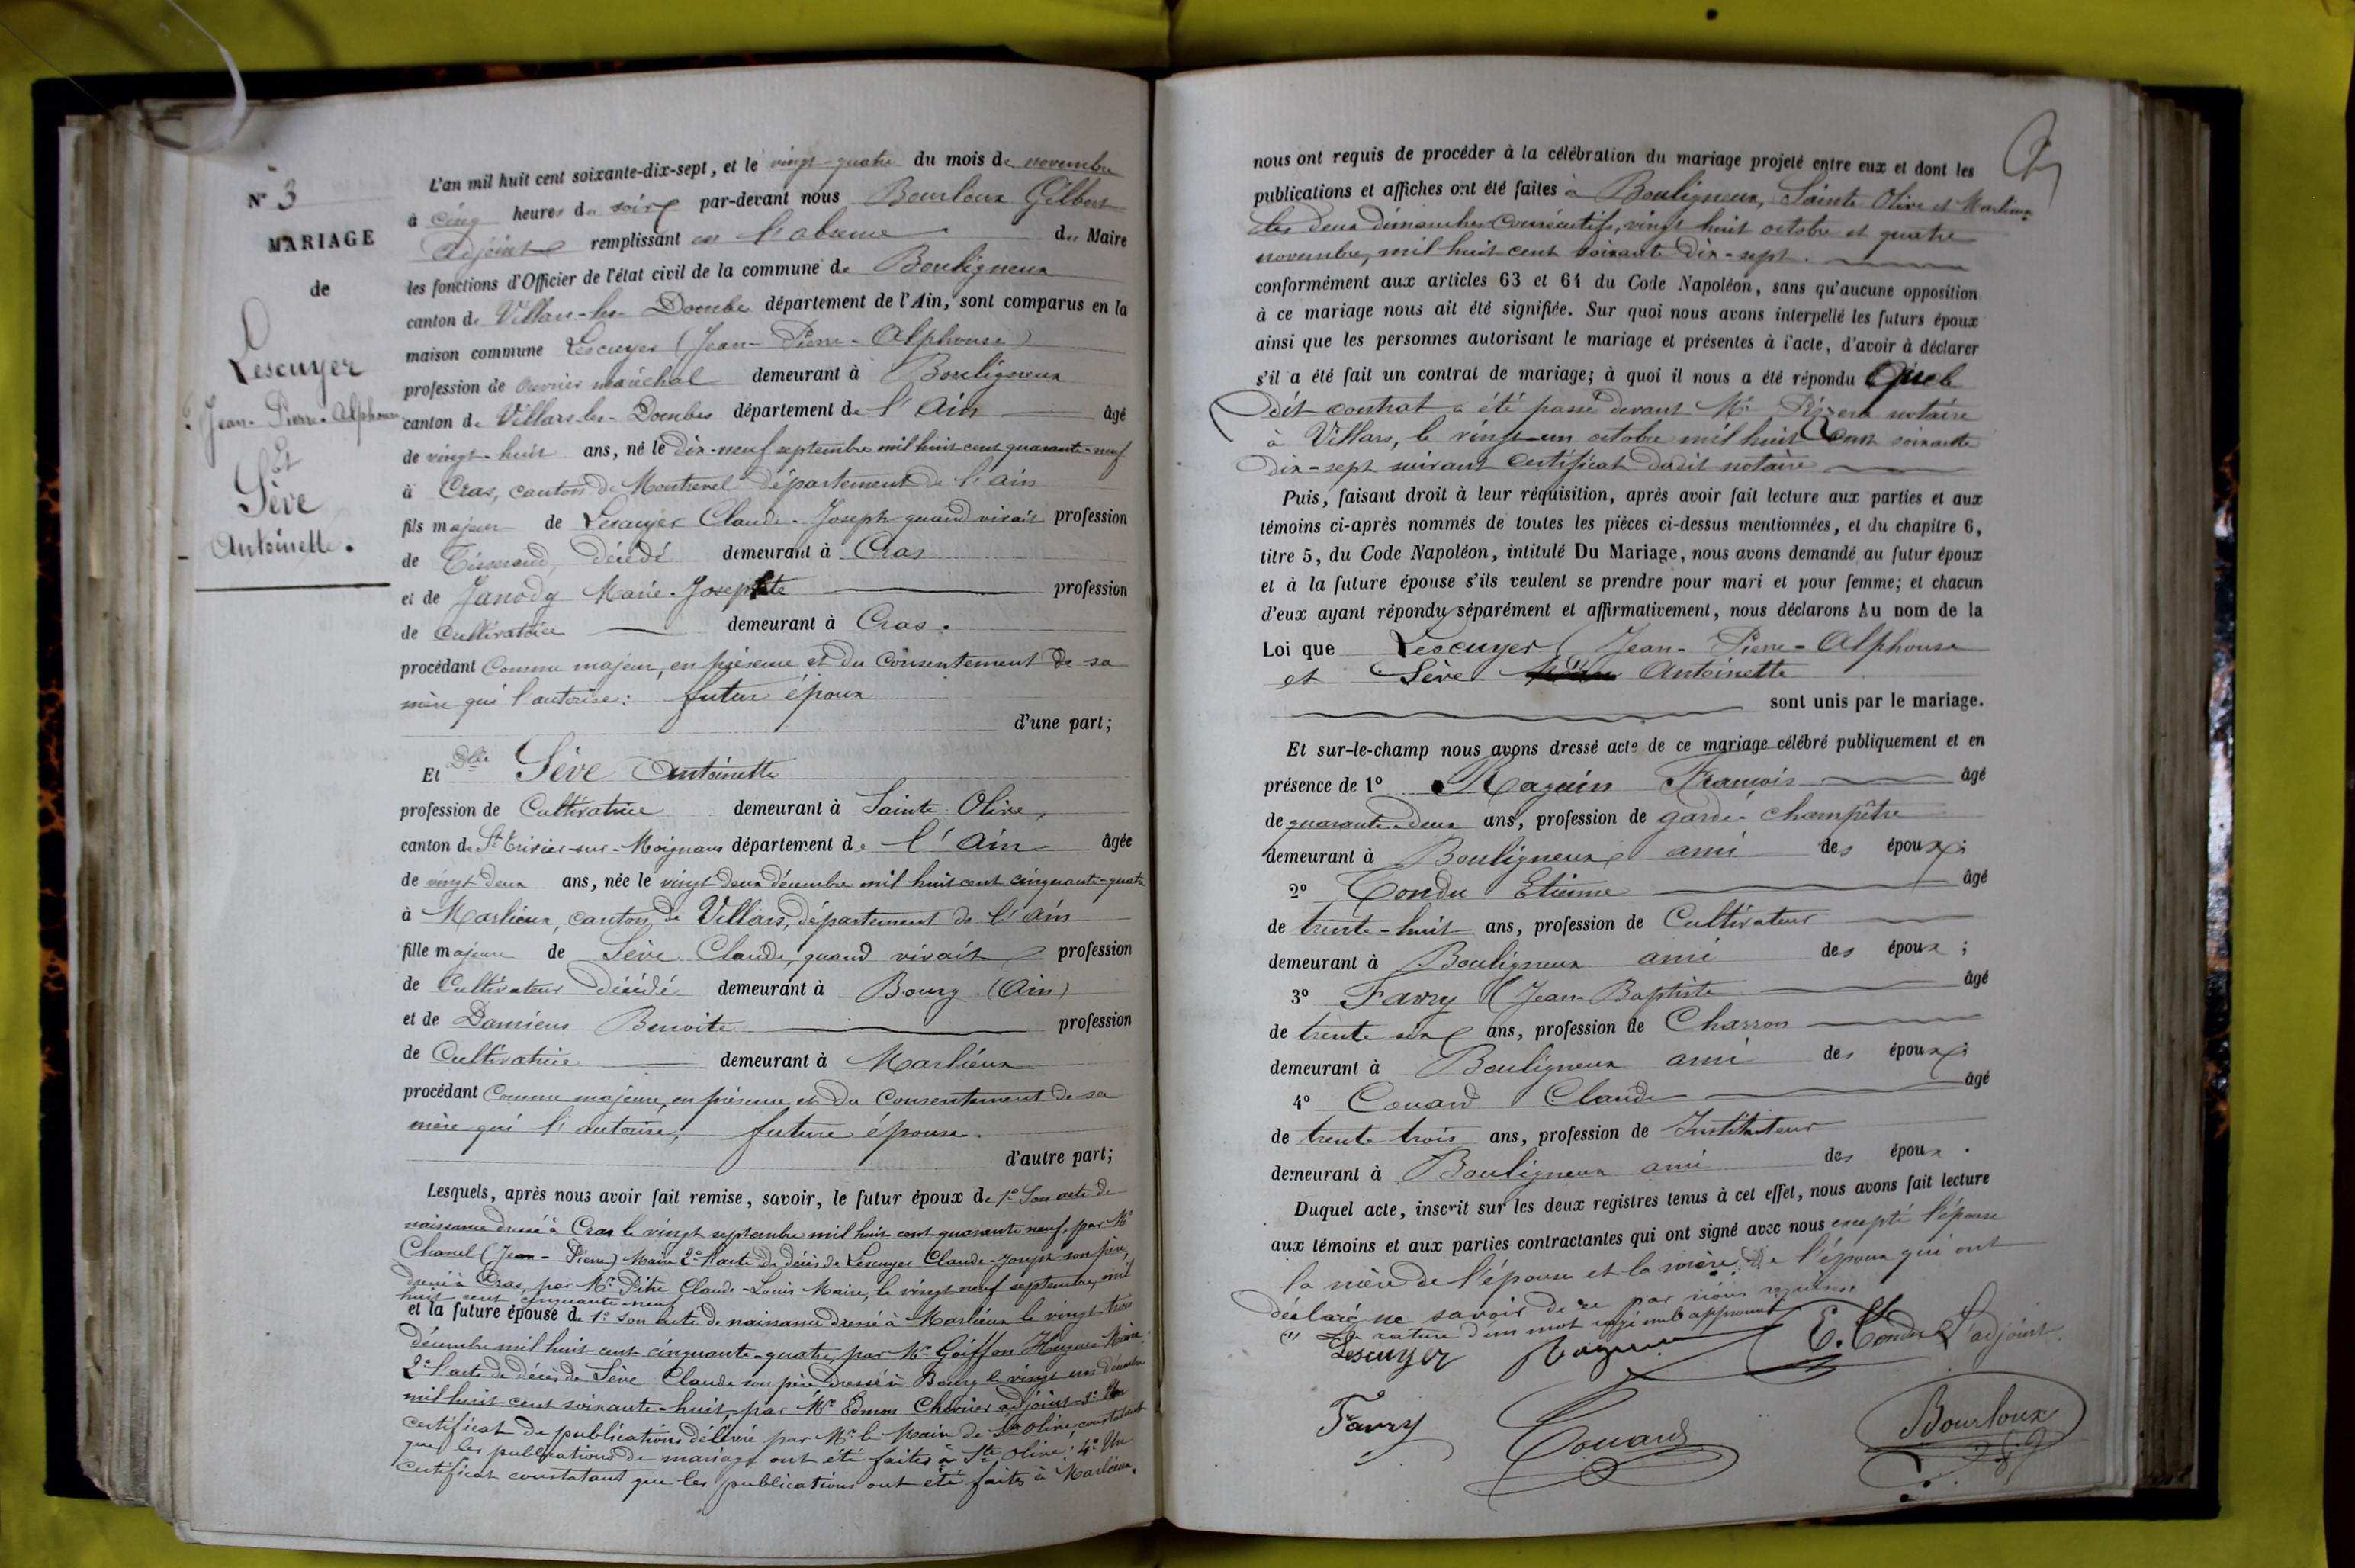 N° 3
MARIAGE
de
Lescuyer
Jean-Pierre-Alphonse
Et
Sève
Antoinette.
L'an mil huit cent soixante-dix-sept, et le vingt-quatre du mois de novembre
à cinq heures du soir par-devant nous Bourloux Gilbert
adjoint remplissant en l'absence du Maire
les fonctions d'Officier de l'état civil de la commune de Bouligneux
canton de Villars-les-Dombes département de l'Ain, sont comparus en la
maison commune Lescuyer (Jean-Pierre-Alphonse)
profession de ouvrier maréchal demeurant à Bouligneux
canton de Villars-les-Dombes département de l'Ain âgé
de vingt-huit ans, né le dix-neuf septembre mil huit cent quarante-neuf
à Cras, canton de Montrevel département de l'ain
fils majeur de Lescuyer Claude-Joseph quand vivait profession
de Tisserand, décédé demeurant à Cras
et de Janody Marie-Josephte profession
de Cultivatrice demeurant à Cras.
procédant Comme majeur, en présence et du Consentement de sa
mère qui l'autorise: futur époux
d'une part;
Et Dlle Sève Antoinette
profession de Cultivatrice demeurant à Sainte Olive,
canton de St Trivier-sur-Moignans département de l'Ain âgée
de vingt deux ans, née le vingt deux décembre mil huit cent cinquante-quatre
à Marlieux, canton de Villars, département de l'Ain
fille majeure de Sève Claude, quand vivait profession
de Cultivateur décédé demeurant à Bourg (Ain)
et de Damiens Benoite profession
de Cultivatrice demeurant à Marlieux
procédant Comme majeure, en présence et du Consentement de sa
mère qui l'autorise, future épouse.
d'autre part;
Lesquels, après nous avoir fait remise, savoir, le futur époux de 1° Son acte de
naissance dressé à Cras le vingt septembre mil huit cent quarante neuf, par Mr
Chanel (Jean-Pierre) Maire 2° l'acte de décès de Lescuyer Claude-Joseph son père,
dressé à Cras, par Mr Pitre Claude-Louis Maire, le vingt neuf septembre, mil
huit cent cinquante-neuf
et la future épouse de 1° son acte de naissance dressé à Marlieux le vingt-trois
décembre mil huit-cent-cinquante-quatre, par Mr Goiffon Hugues Maire.
2° l'acte de décès de Sève Claude son père dressé à Bourg le vingt un décembre
mil huit-cent soixante-huit, par Mr Edmon Chevrier adjoint 3° Un
certificat de publications délivré par Mr le Maire de Ste Olive, constatant
que les publications de mariage ont été faites à Ste Olive; 4° Un
certificat constatant que les publications ont été faites à Marlieux.
nous ont requis de procéder à la célébration du mariage projeté entre eux et dont les
publications et affiches ont été faites à Bouligneux, Sainte Olive et Marlieux
les deux dimanches consécutifs, vingt huit octobre et quatre
novembre, mil huit cent soixante dix-sept.
conformément aux articles 63 et 64 du Code Napoléon, sans qu'aucune opposition
à ce mariage nous ait été signifiée. Sur quoi nous avons interpellé les futurs époux
ainsi que les personnes autorisant le mariage et présentes à l'acte, d'avoir à déclarer
s'il a été fait un contrat de mariage; à quoi il nous a été répondu Que le
dit contrat a été passé devant Mr notaire
à Villars, le vingt-un octobre mil huit cent soixante
dix-sept suivant certificat dudit notaire
Puis, faisant droit à leur réquisition, après avoir fait lecture aux parties et aux
témoins ci-après nommés de toutes les pièces ci-dessus mentionnées, et du chapitre 6,
titre 5, du Code Napoléon, intitulé Du Mariage, nous avons demandé au futur époux
et à la future épouse s'ils veulent se prendre pour mari et pour femme; et chacun
d'eux ayant répondu séparément et affirmativement, nous déclarons Au nom de la
Loi que Lescuyer (Jean-Pierre-Alphonse
et Sève Antoinette
sont unis par le mariage.
Et sur-le-champ nous avons dressé acte de ce mariage célébré publiquement et en
présence de 1° Raguin Francois âgé
de quarante-deux ans, profession de garde-champêtre
demeurant à Bouligneux ami des époux;
2° Condu Etienne âgé
de trente-huit ans, profession de Cultivateur
demeurant à Bouligneux ami des époux;
3° Favry (Jean-Baptiste âgé
de trente six ans, profession de Charron
demeurant à Bouligneux ami des époux;
4° Couard Claude âgé
de trente-trois ans, profession de Instituteur
demeurant à Bouligneux ami des époux.
Duquel acte, inscrit sur les deux registres tenus à cet effet, nous avons fait lecture
aux témoins et aux parties contractantes qui ont signé avec nous excepté l'épouse
la mère de l'épouse et la mère de l'époux qui ont
déclaré ne savoir de ce par nous requises.
La rature d'un mot rayé nul approuvé
Lescuyer Raguin E. Condu L'adjoint
Favry Couard Bourloux